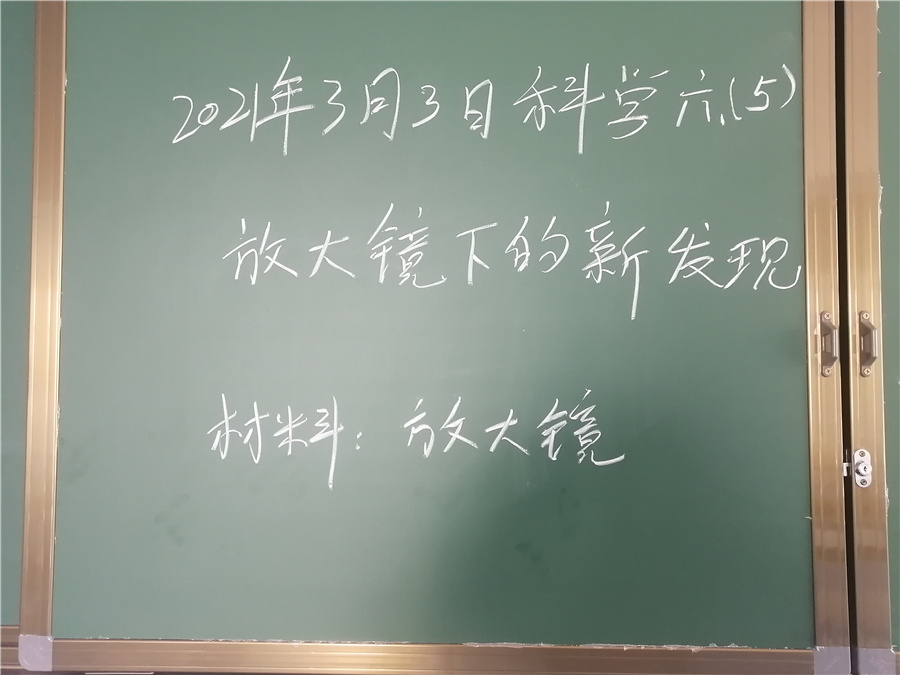 2021年3月3日科学六(5)
放大镜下的新发现
材料:放大镜